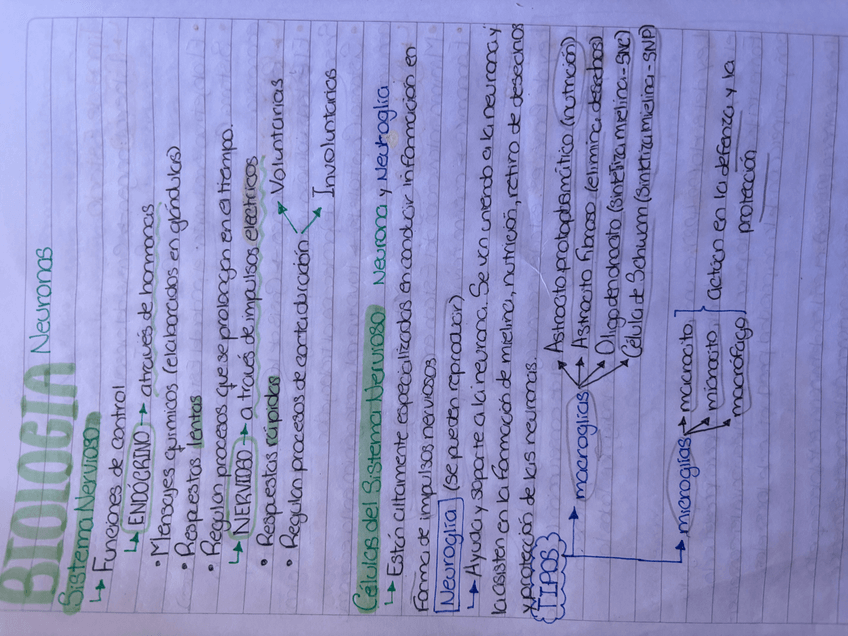 BIOLOGIA Neuronas
Sistema Nervioso
↳ Funciones de control
↳ ENDÓCRINO → através de hormonas
• Mensajes químicos (elaborados en glándulas)
• Respuestas lentas
• Regulan procesos que se prolongan en el tiempo.
↳ NERVIOSO → a través de impulsos electricos
• Respuestas rápidas
• Regulan procesos de corta duración
Voluntarias
Involuntarios
Células del Sistema Nervioso Neurona y Neuroglia
↳ Están altamente especializadas en conducir información en
forma de impulsos nerviosos
Neuroglia (se pueden reproducir)
↳ Ayuda y soporte a la neurona. Se van uniendo a la neurona y
la asisten en la formación de mielina, nutrición, retiro de desechos
y protección de las neuronas.
TIPOS
→ macroglias
Astrocito protoplasmático (nutrición)
Astrocito Fibroso (elimina desechos)
Oligodendrocito (sintetiza mielina-SNC)
Célula de Schwm (sintetiza mielina-SNP)
→ microglias
macrocito
microcito
macrófago
actúan en la defenza y la
protección